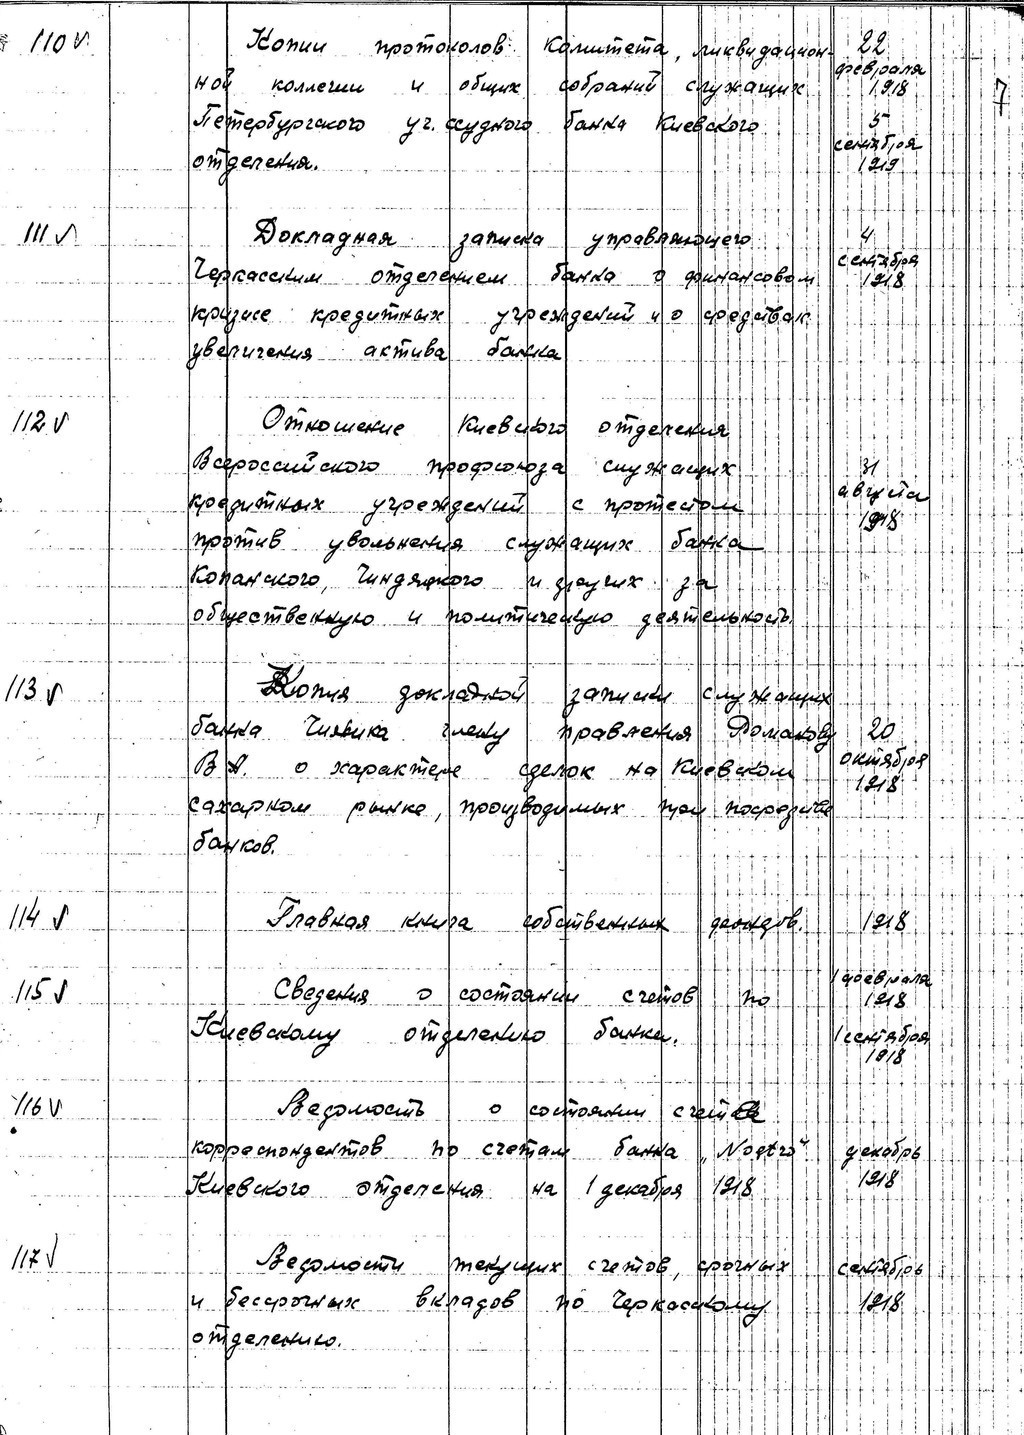 110 Копии протоколов Комитета, ликвидацион- 22
ной коллегии и общих собраний служащих февраля 1918
Петербургского уч. ссудного банка Киевского 5
отделения. сентября 1919
7
111 Докладная записка управляющего 4
Черкасским отделением банка о финансовом сентября 1918
кризисе кредитных учреждений и о средствах
увеличения актива банка
112 Отношение Киевского отделения
Всероссийского профсоюза служащих 31
кредитных учреждений с протестом августа
против увольнения служащих банка 1918
Копанского, Чиндяцкого и других за
общественную и политическую деятельность.
113 Копия докладной записки служащих
банка члену правления Романову 20
В.А. о характере сделок на Киевском октября
сахарном рынке, производимых при посредстве 1918
банков.
114 Главная книга собственных фондов. 1918
115 Сведения о состоянии счетов по 1 февраля 1918
Киевскому отделению банка. 1 сентября 1918
116 Ведомость о состоянии счетов
корреспондентов по счетам банка „Nostro“ декабрь
Киевского отделения на 1 декабря 1918 1918
117 Ведомости текущих счетов, срочных сентябрь
и бессрочных вкладов по Черкасскому 1918
отделению.